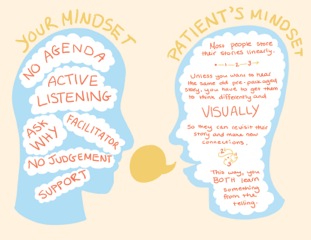 YOUR MINDSET
NO AGENDA
ACTIVE
LISTENING
ASK
WHY
FACILITATOR
NO JUDGEMENT
SUPPORT
PATIENT'S MINDSET
Most people store
their stories linearly.
1 2 3
Unless you want to hear
the same old pre-packaged
story, you have to get them
to think differently and
VISUALLY
So they can revisit their
story and make new
connections.
This way, you
BOTH learn
something
from the
telling.